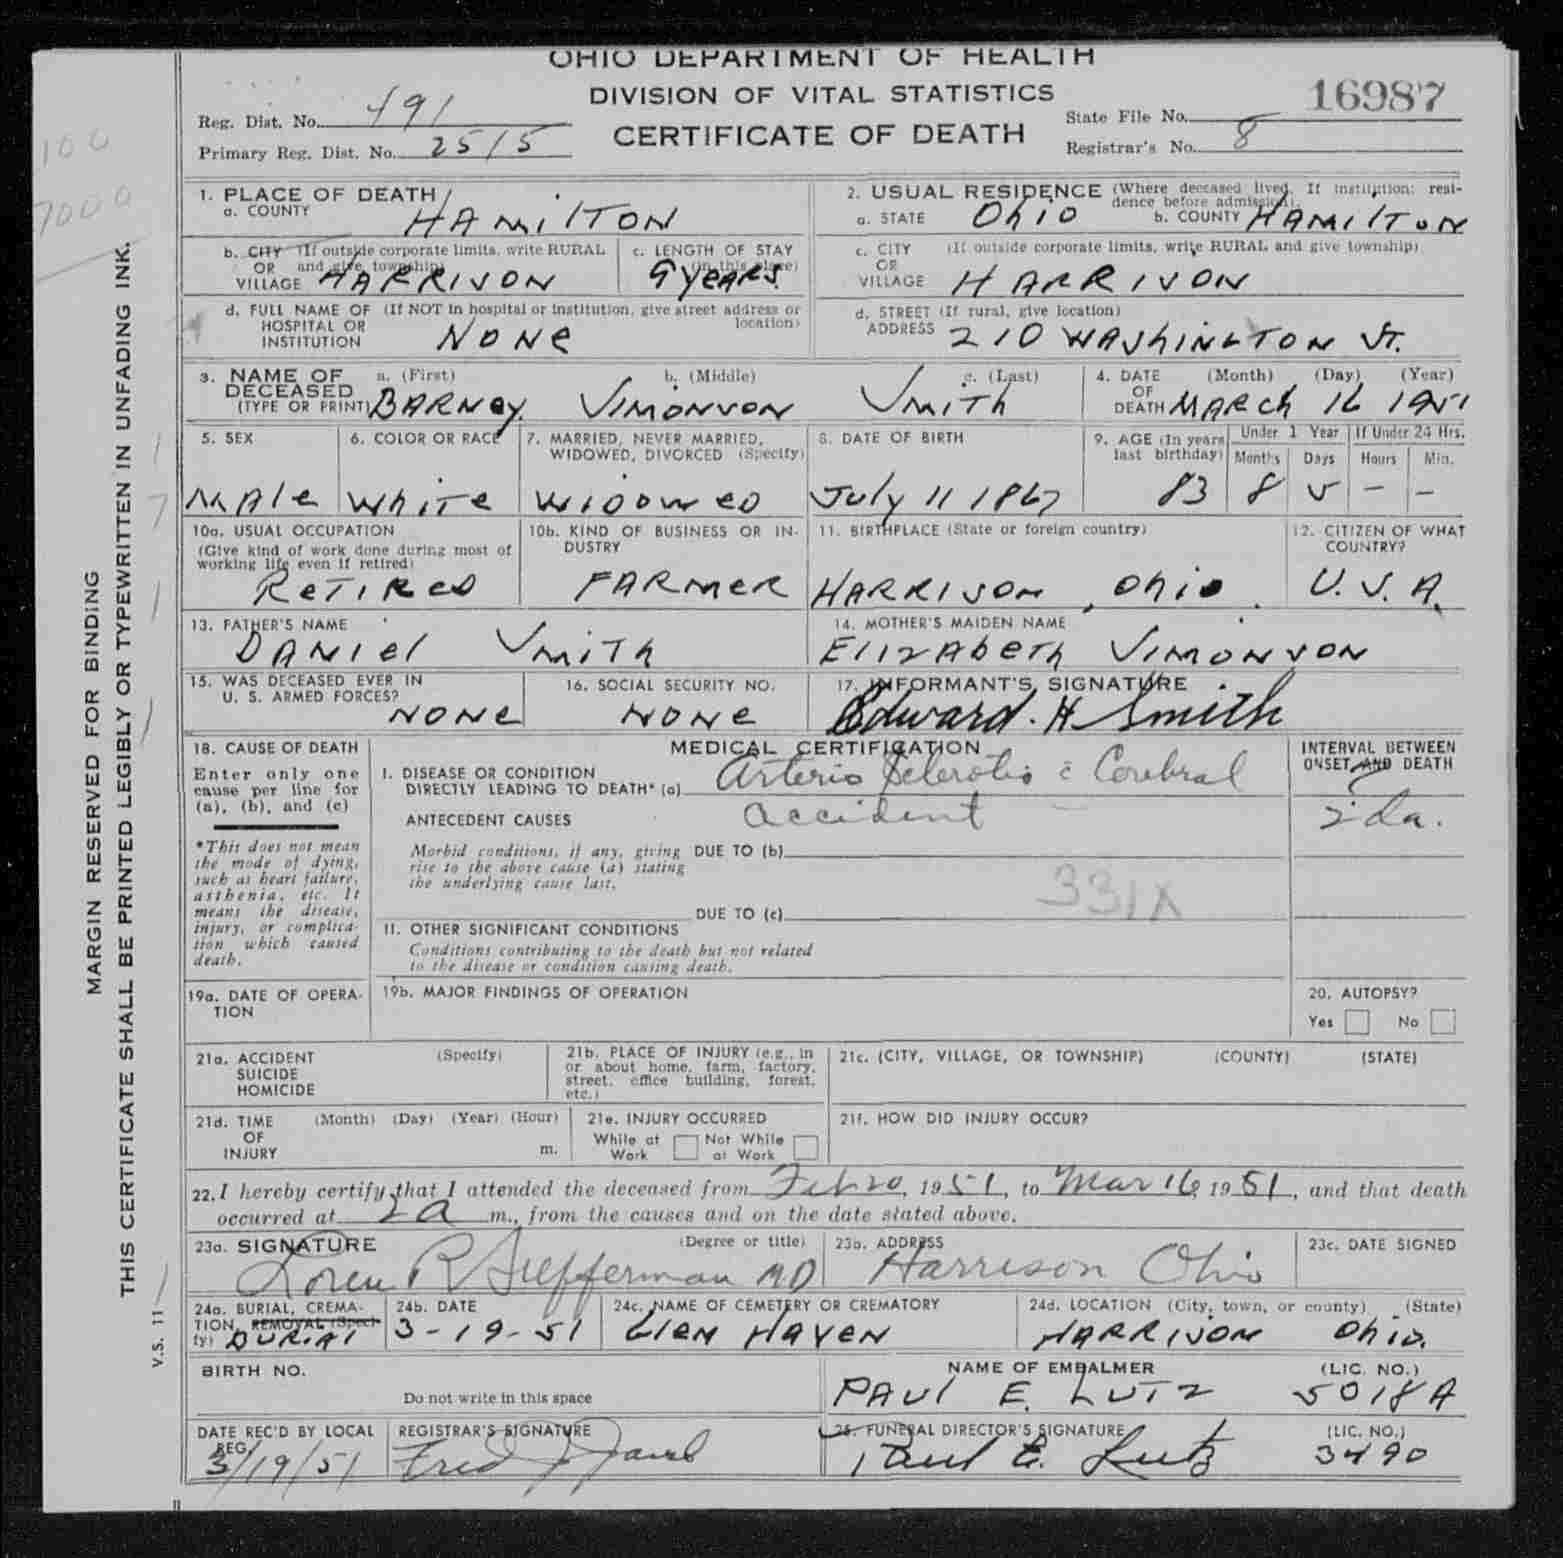 OHIO DEPARTMENT OF HEALTH
DIVISION OF VITAL STATISTICS
CERTIFICATE OF DEATH
Reg. Dist. No. 491
Primary Reg. Dist. No. 2515
16987
State File No.
Registrar's No. 8
100
7000
MARGIN RESERVED FOR BINDING
THIS CERTIFICATE SHALL BE PRINTED LEGIBLY OR TYPEWRITTEN IN UNFADING INK.
V.S. 11
1. PLACE OF DEATH
a. COUNTY HAMILTON
b. CITY (If outside corporate limits, write RURAL
OR and give township)
VILLAGE HARRISON
c. LENGTH OF STAY
(in this place)
9 years.
d. FULL NAME OF (If NOT in hospital or institution, give street address or
HOSPITAL OR location)
INSTITUTION NONE
2. USUAL RESIDENCE (Where deceased lived. If institution: resi-
dence before admission).
a. STATE Ohio b. COUNTY HAMILTON
c. CITY (If outside corporate limits, write RURAL and give township)
OR
VILLAGE HARRISON
d. STREET (If rural, give location)
ADDRESS 210 WASHINGTON ST.
3. NAME OF a. (First) b. (Middle) c. (Last)
DECEASED
(TYPE OR PRINT) BARNEY SIMONSON SMITH
4. DATE (Month) (Day) (Year)
OF
DEATH MARCH 16 1951
5. SEX
MALE
6. COLOR OR RACE
WHITE
7. MARRIED, NEVER MARRIED,
WIDOWED, DIVORCED (Specify)
WIDOWED
8. DATE OF BIRTH
July 11 1867
9. AGE (In years
last birthday)
83
Under 1 Year
Months Days
8 5
If Under 24 Hrs.
Hours Min.
- -
10a. USUAL OCCUPATION
(Give kind of work done during most of
working life even if retired)
RETIRED
10b. KIND OF BUSINESS OR IN-
DUSTRY
FARMER
11. BIRTHPLACE (State or foreign country)
HARRISON, Ohio.
12. CITIZEN OF WHAT
COUNTRY?
U.S.A.
13. FATHER'S NAME
DANIEL SMITH
14. MOTHER'S MAIDEN NAME
ELIZABETH SIMONSON
15. WAS DECEASED EVER IN
U. S. ARMED FORCES?
NONE
16. SOCIAL SECURITY NO.
NONE
17. INFORMANT'S SIGNATURE
Edward. H Smith
18. CAUSE OF DEATH
Enter only one
cause per line for
(a), (b), and (c)
*This does not mean
the mode of dying,
such as heart failure,
asthenia, etc. It
means the disease,
injury, or complica-
tion which caused
death.
MEDICAL CERTIFICATION
I. DISEASE OR CONDITION
DIRECTLY LEADING TO DEATH* (a) Arterio Sclerotis c̄ Cerebral
Accident
ANTECEDENT CAUSES
Morbid conditions, if any, giving DUE TO (b)
rise to the above cause (a) stating
the underlying cause last.
331X
DUE TO (c)
II. OTHER SIGNIFICANT CONDITIONS
Conditions contributing to the death but not related
to the disease or condition causing death.
INTERVAL BETWEEN
ONSET AND DEATH
2 da.
19a. DATE OF OPERA-
TION
19b. MAJOR FINDINGS OF OPERATION
20. AUTOPSY?
Yes No
21a. ACCIDENT (Specify)
SUICIDE
HOMICIDE
21b. PLACE OF INJURY (e.g., in
or about home, farm, factory,
street, office building, forest,
etc.)
21c. (CITY, VILLAGE, OR TOWNSHIP) (COUNTY) (STATE)
21d. TIME (Month) (Day) (Year) (Hour)
OF
INJURY m.
21e. INJURY OCCURRED
While at Not While
Work at Work
21f. HOW DID INJURY OCCUR?
22. I hereby certify that I attended the deceased from Feb 20, 1951, to Mar 16, 1951, and that death
occurred at 2 A m., from the causes and on the date stated above.
23a. SIGNATURE (Degree or title)
Loren R MD
23b. ADDRESS
Harrison Ohio
23c. DATE SIGNED
24a. BURIAL, CREMA-
TION, REMOVAL (Speci-
fy) BURIAL
24b. DATE
3-19-51
24c. NAME OF CEMETERY OR CREMATORY
Glen Haven
24d. LOCATION (City, town, or county) (State)
HARRISON Ohio.
BIRTH NO.
Do not write in this space
NAME OF EMBALMER (LIC. NO.)
PAUL E. LUTZ 5018A
DATE REC'D BY LOCAL
REG.
3/19/51
REGISTRAR'S SIGNATURE
Fred J
25. FUNERAL DIRECTOR'S SIGNATURE (LIC. NO.)
Paul E. Lutz 3490